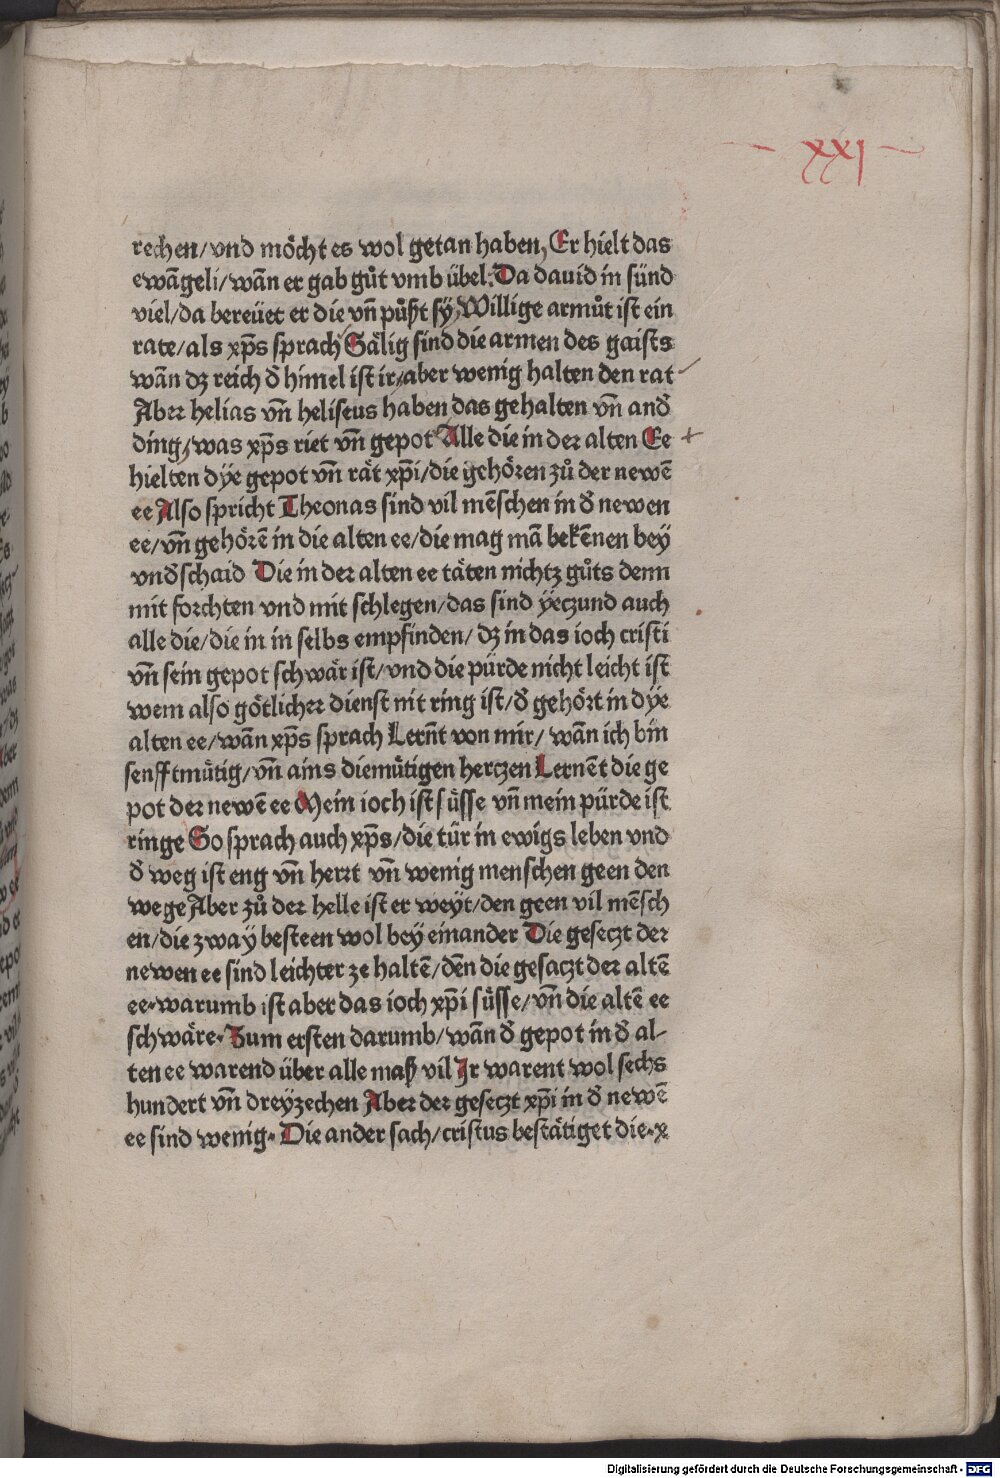 xxj
rechen/vnd möcht es wol getan haben, Er hielt das
ewãgeli/wãn er gab gůt vmb übel. Da dauid in sünd
viel/da bereüet er die vñ půßt sy, Willige armůt ist ein
rate/als xp̃s sprach Sälig sind die armen des gaists
wãn dz reich đ himel ist ir/aber wenig halten den rat
Aber helias vñ heliseus haben das gehalten vñ anđ
ding/was xp̃s riet vñ gepot Alle die in der alten Ee
hielten dÿe gepot vñ rät xp̃i/die gehören zů der newẽ
ee Also spricht Theonas sind vil mẽschen in đ newen
ee/vñ gehörẽ in die alten ee/die mag mã bekẽnen bey
vnđschaid Die in der alten ee täten nichtz gůts denn
mit forchten vnd mit schlegen/das sind ÿeczund auch
alle die/die in in selbs empfinden/dz in das ioch cristi
vñ sein gepot schwär ist/vnd die pürde nicht leicht ist
wem also götlicher dienst nit ring ist/đ gehört in dÿe
alten ee/wãn xp̃s sprach Lernt von mir/wãn ich bin
senfftmütig/vñ ains diemütigen herczen Lernẽt die ge
pot der newẽ ee Mein ioch ist süsse vñ mein pürde ist
ringe So sprach auch xp̃s/die tür in ewigs leben vnd
đ weg ist eng vñ herrt vñ wenig menschen geen den
wege Aber zů der helle ist er weyt/den geen vil mẽsch
en/die zwaÿ besteen wol beÿ einander Die geseczt der
newen ee sind leichter ze haltẽ/dẽn die gesaczt der altẽ
ee·warumb ist aber das ioch xp̃i süsse/vñ die altẽ ee
schwäre·Zum ersten darumb/wãn đ gepot in đ al-
ten ee warend über alle maß vil Ir warent wol sechs
hundert vñ dreÿzechen Aber der geseczt xp̃i in đ newẽ
ee sind wenig· Die ander sach/cristus bestätiget die·x
Digitalisierung gefördert durch die Deutsche Forschungsgemeinschaft - DFG